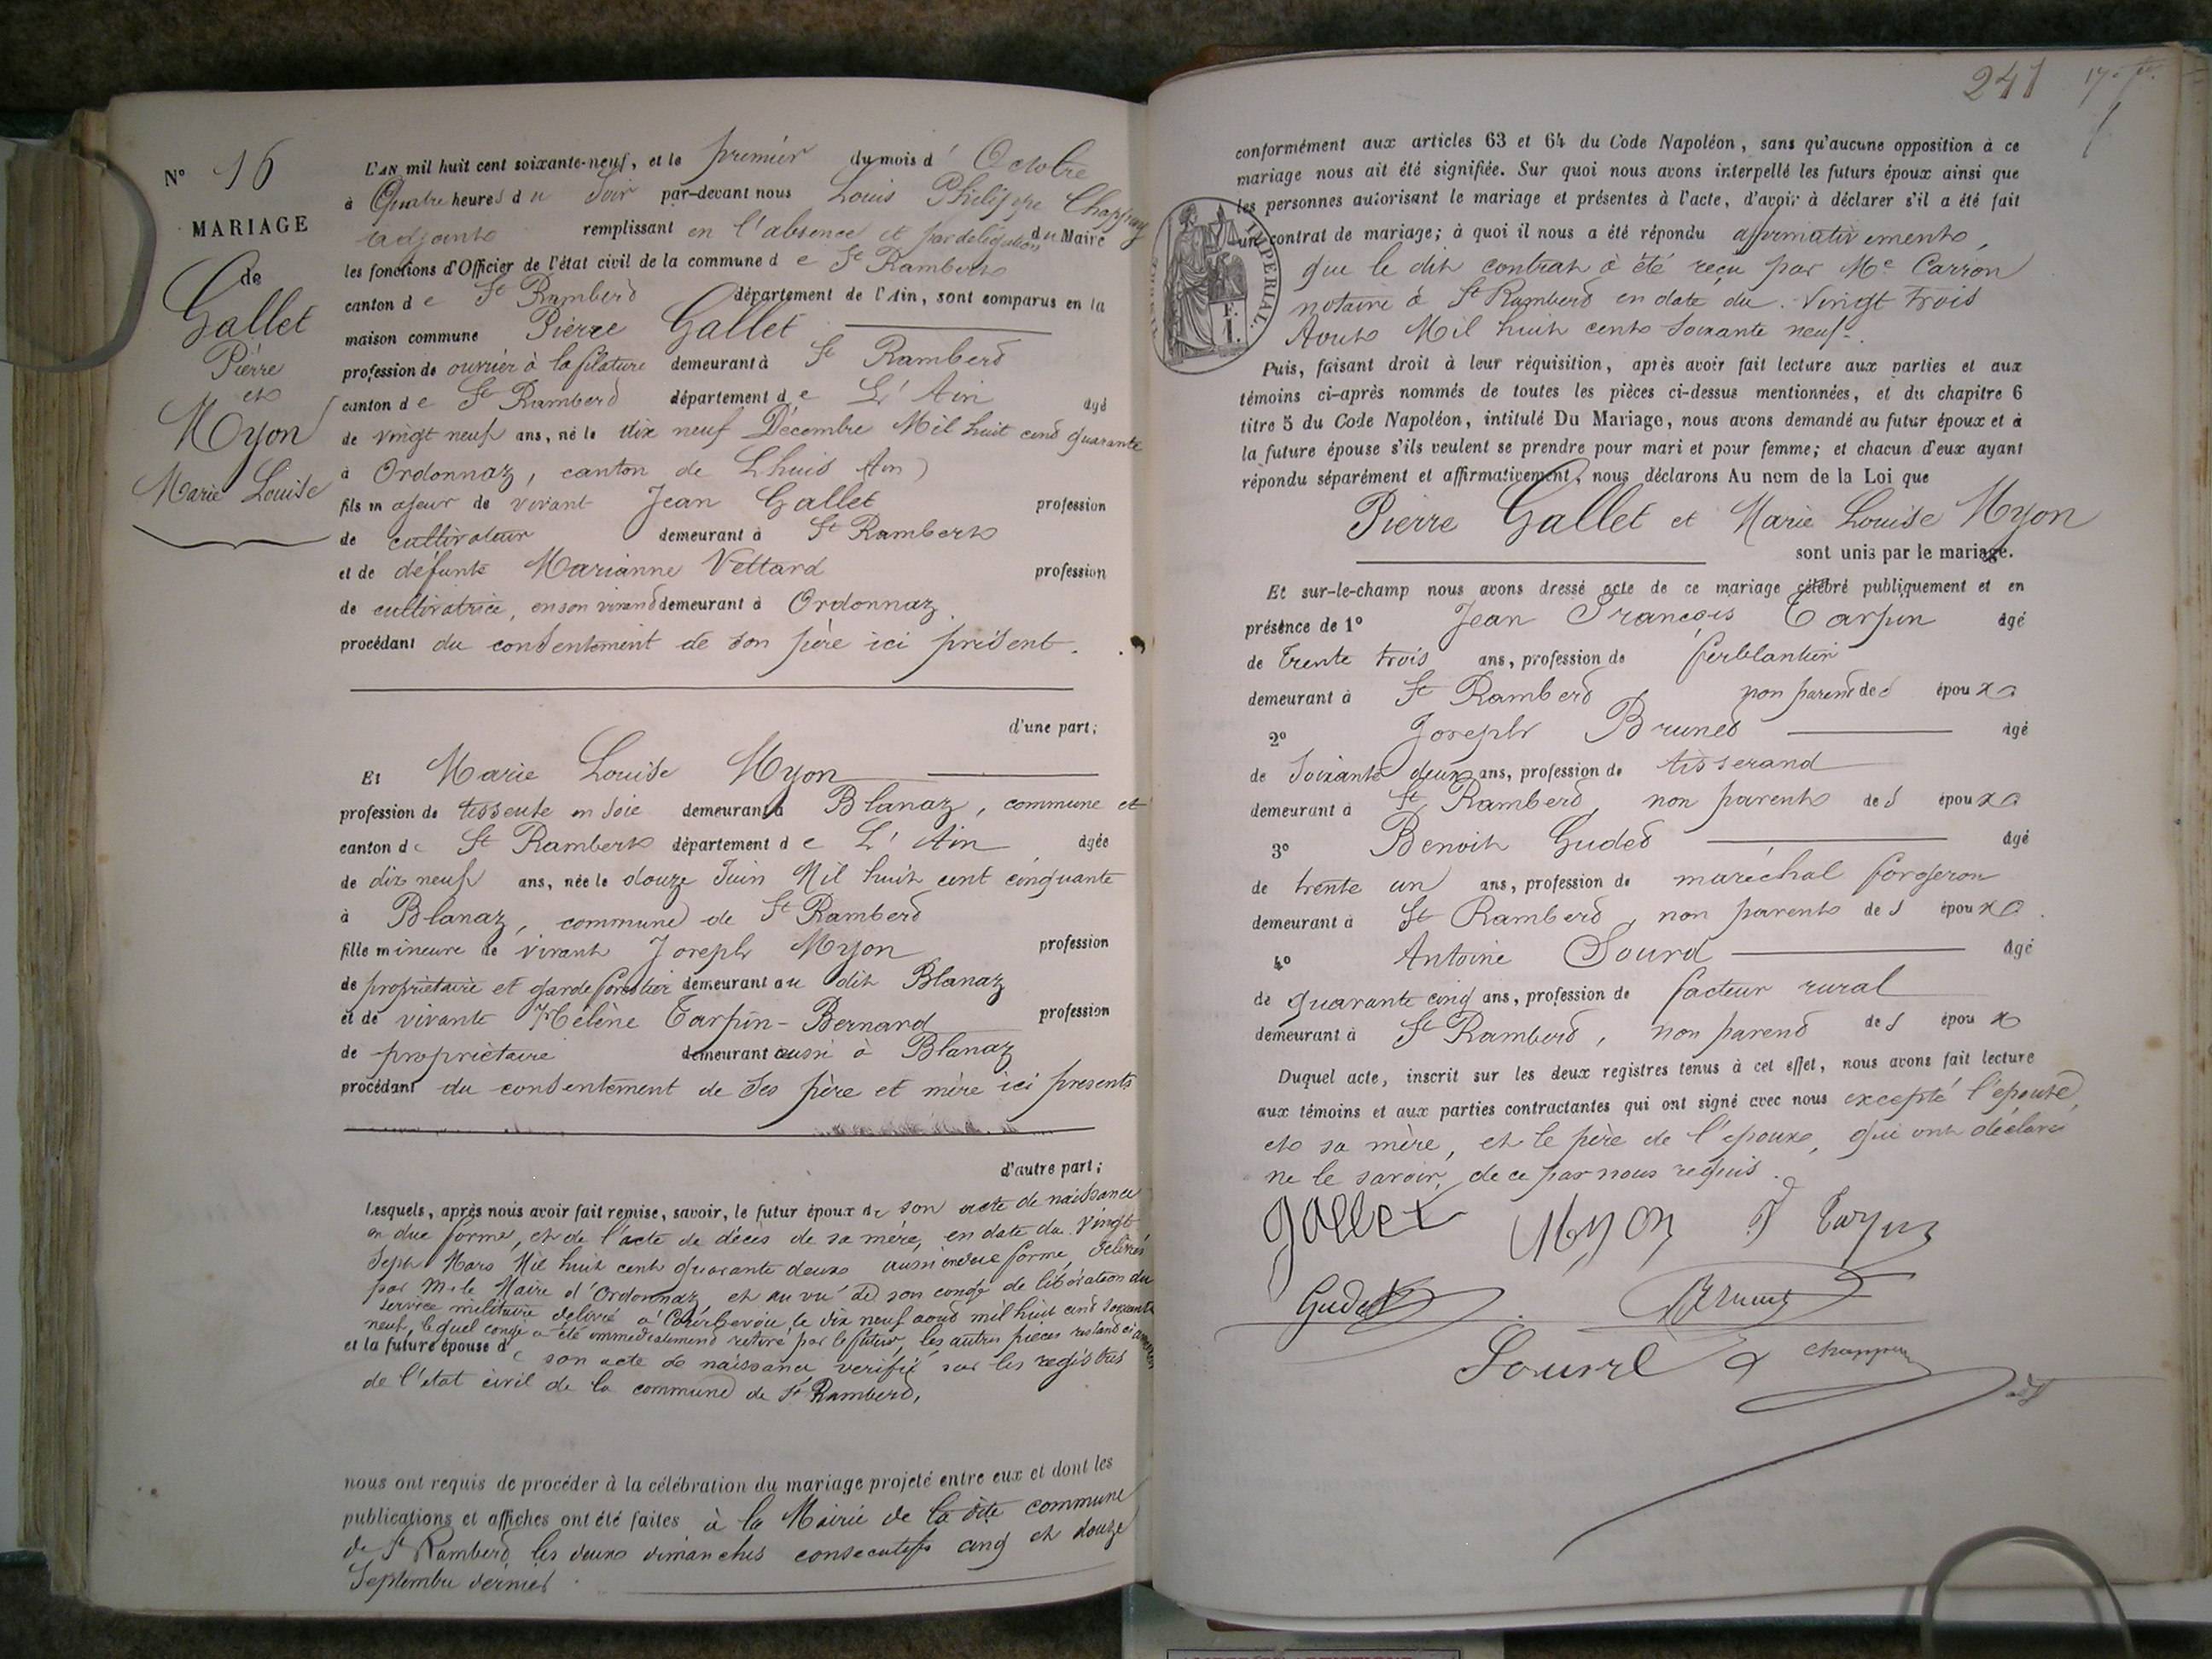 N° 16
MARIAGE
de
Gallet
Pierre
et
Myon
Marie Louise
L'AN mil huit cent soixante-neuf, et le premier du mois d' Octobre
à Quatre heures du soir par-devant nous Louis Philippe Chappuy
adjoint remplissant en l'absence et par délégation du Maire
les fonctions d'Officier de l'état civil de la commune de St Rambert
canton de St Rambert département de l'Ain, sont comparus en la
maison commune Pierre Gallet
profession de ouvrier à la filature demeurant à St Rambert
canton de St Rambert département de L'Ain âgé
de vingt neuf ans, né le dix neuf Décembre Mil huit cent quarante
à Ordonnaz, canton de Lhuis Ain)
fils majeur de vivant Jean Gallet profession
de cultivateur demeurant à St Rambert
et de défunte Marianne Vettard profession
de cultivatrice, en son vivant demeurant à Ordonnaz
procédant du consentement de son père ici présent.
d'une part;
Et Marie Louise Myon
profession de tisseuse en soie demeurant à Blanaz, commune et
canton de St Rambert département de L'Ain âgée
de dix neuf ans, née le douze Juin Mil huit cent cinquante
à Blanaz, commune de St Rambert
fille mineure de vivant Joseph Myon profession
de propriétaire et garde forestier demeurant au dit Blanaz
et de vivante Hélène Tarpin-Bernard profession
de propriétaire demeurant aussi à Blanaz
procédant du consentement de ses père et mère ici présents
d'autre part;
Lesquels, après nous avoir fait remise, savoir, le futur époux de son acte de naissance
en due forme, et de l'acte de décès de sa mère, en date du Vingt
Sept Mars Mil huit cent quarante deux aussi en due forme, délivrés
par M. le Maire d'Ordonnaz et au vu de son congé de libération du
service militaire délivré à Courbevoie le dix neuf aout mil huit cent soixante
neuf, lequel congé a été immédiatement retiré par le futur, les autres pièces restant ci annexées
et la future épouse de son acte de naissance vérifié sur les registres
de l'état civil de la commune de St Rambert,
nous ont requis de procéder à la célébration du mariage projeté entre eux et dont les
publications et affiches ont été faites à la Mairie de la dite commune
de St Rambert les deux dimanches consecutifs cinq et douze
Septembre dernier
241
conformément aux articles 63 et 64 du Code Napoléon, sans qu'aucune opposition à ce
mariage nous ait été signifiée. Sur quoi nous avons interpellé les futurs époux ainsi que
les personnes autorisant le mariage et présentes à l'acte, d'avoir à déclarer s'il a été fait
un contrat de mariage; à quoi il nous a été répondu affirmativement,
que le dit contrat a été reçu par Me Carron
notaire à St Rambert en date du Vingt trois
Aout Mil huit cent soixante neuf.
IMPERIAL.
F.
I.
Puis, faisant droit à leur réquisition, après avoir fait lecture aux parties et aux
témoins ci-après nommés de toutes les pièces ci-dessus mentionnées, et du chapitre 6
titre 5 du Code Napoléon, intitulé Du Mariage, nous avons demandé au futur époux et à
la future épouse s'ils veulent se prendre pour mari et pour femme; et chacun d'eux ayant
répondu séparément et affirmativement, nous déclarons Au nom de la Loi que
Pierre Gallet et Marie Louise Myon
sont unis par le mariage.
Et sur-le-champ nous avons dressé acte de ce mariage célébré publiquement et en
présence de 1° Jean François Tarpin âgé
de trente trois ans, profession de ferblantier
demeurant à St Rambert non parent des époux
2° Joseph Brunet âgé
de Soixante deux ans, profession de tisserand
demeurant à St Rambert, non parent des époux
3° Benoit Gudet âgé
de trente un ans, profession de maréchal forgeron
demeurant à St Rambert, non parent des époux
4° Antoine Sourd âgé
de quarante cinq ans, profession de facteur rural
demeurant à St Rambert, non parent des époux
Duquel acte, inscrit sur les deux registres tenus à cet effet, nous avons fait lecture
aux témoins et aux parties contractantes qui ont signé avec nous excepté l'épouse,
et sa mère, et le père de l'époux, qui ont déclaré
ne le savoir, de ce par nous requis.
gallet Myon
Gudet Brunet
Sourd